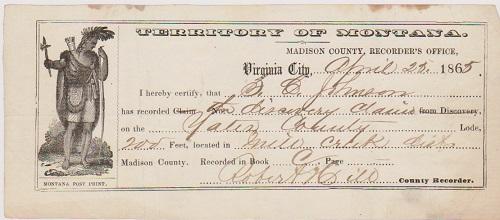 TERRITORY OF MONTANA.
MADISON COUNTY, RECORDER'S OFFICE,
Virginia City, April 25. 1865
I hereby certify, that B. C. Johnson
has recorded Claim No. discovery claim from Discovery,
on the County Lode,
200 Feet, located in Mill Creek dist.
Madison County. Recorded in Book C, Page
Robert Hill County Recorder.
MONTANA POST PRINT.